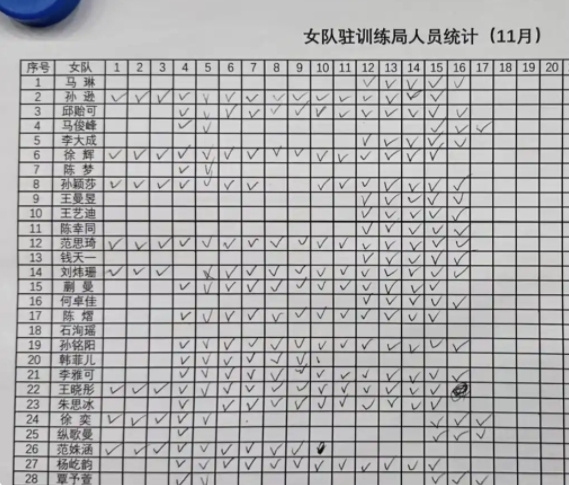 女队驻训练局人员统计（11月）
序号 女队 1 2 3 4 5 6 7 8 9 10 11 12 13 14 15 16 17 18 19 20
1 马 琳
2 孙 逊
3 邱贻可
4 马俊峰
5 李大成
6 徐 辉
7 陈 梦
8 孙颖莎
9 王曼昱
10 王艺迪
11 陈幸同
12 范思琦
13 钱天一
14 刘炜珊
15 蒯 曼
16 何卓佳
17 陈 熠
18 石洵瑶
19 孙铭阳
20 韩菲儿
21 李雅可
22 王晓彤
23 朱思冰
24 徐 奕
25 纵歌曼
26 范姝涵
27 杨屹韵
28 覃予萱